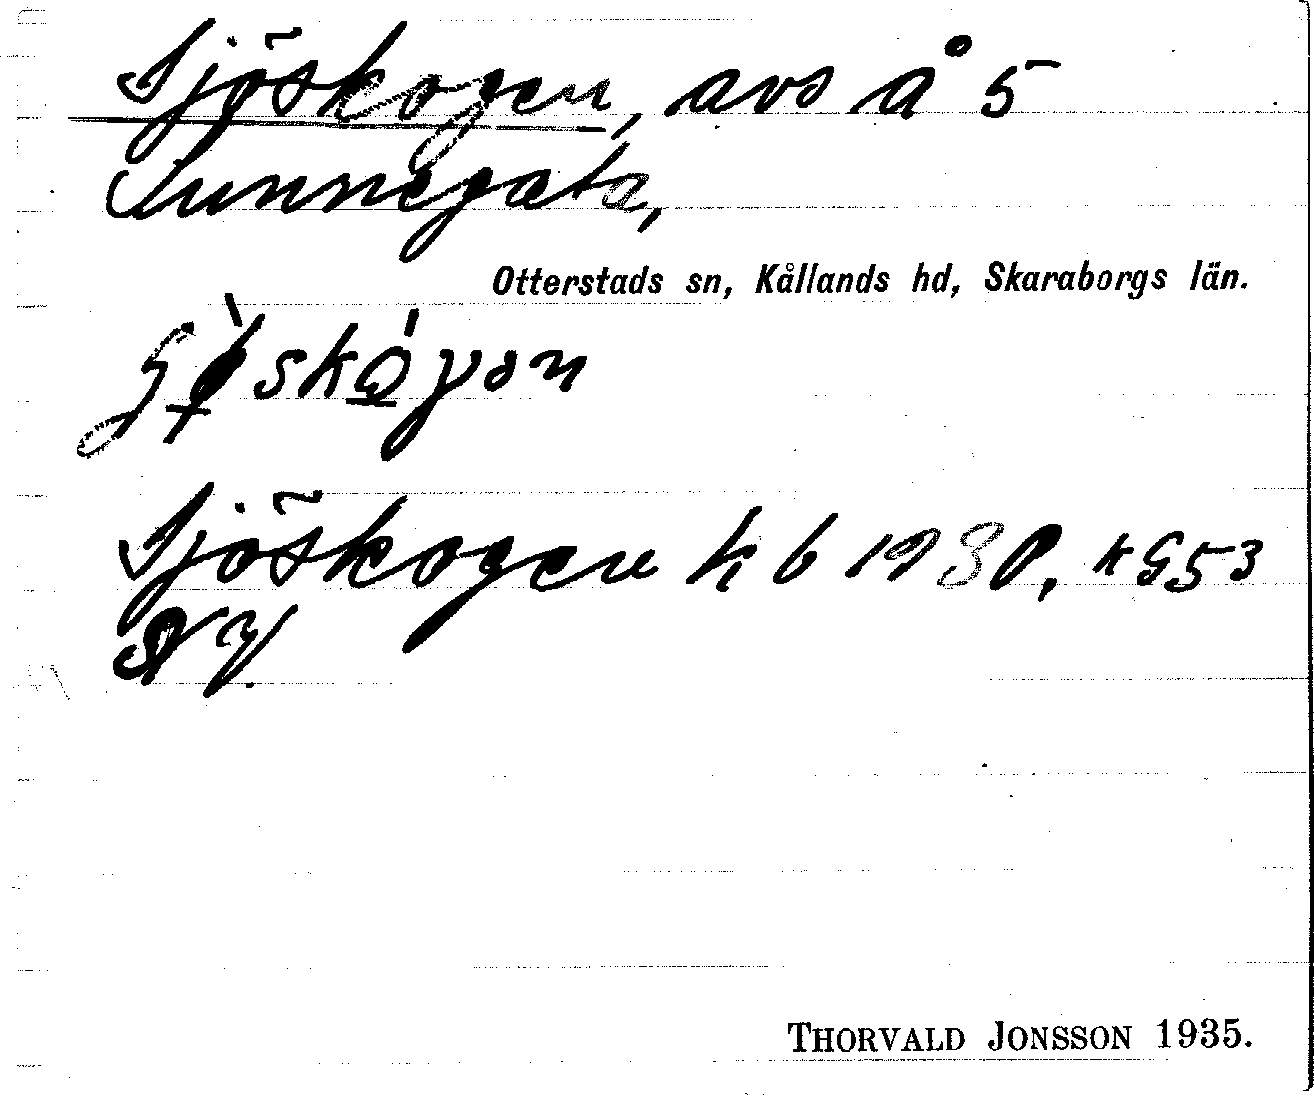 Sjöskogen, avs å 5
Sunnegåta,
Otterstads sn, Kållands hd, Skaraborgs län.
Sjöskogen kb 1930, k G53
THORVALD JONSSON 1935.